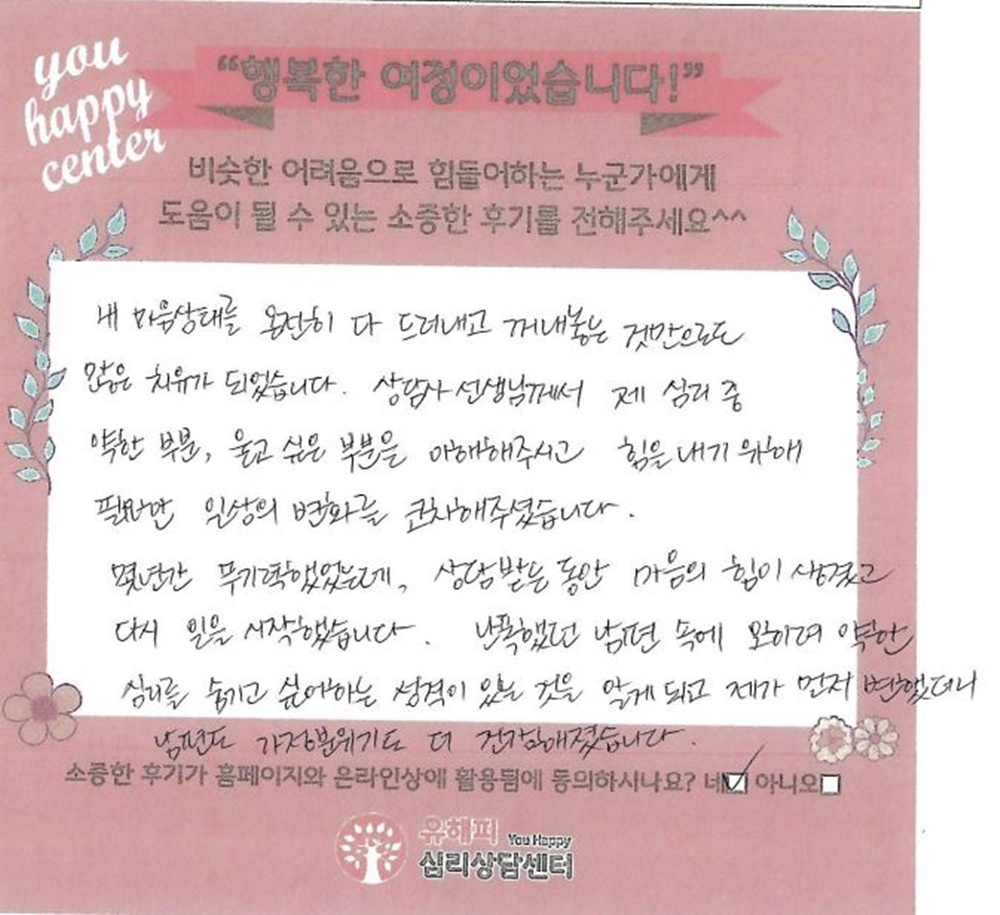 you
happy
center
“행복한 여정이었습니다!”
비슷한 어려움으로 힘들어하는 누군가에게
도움이 될 수 있는 소중한 후기를 전해주세요^^
내 마음상태를 온전히 다 드러내고 꺼내놓는 것만으로도
많은 치유가 되었습니다. 상담사 선생님께서 제 심리 중
약한 부분, 울고 싶은 부분을 이해해주시고 힘을 내기 위해
필요한 일상의 변화를 코치해주셨습니다.
몇년간 무기력했었는데, 상담받는 동안 마음의 힘이 생겼고
다시 일을 시작했습니다. 난폭했던 남편 속에 오히려 약한
심리를 숨기고 싶어하는 성격이 있는 것을 알게 되고 제가 먼저 변했더니
남편도 가정분위기도 더 건강해졌습니다.
소중한 후기가 홈페이지와 온라인상에 활용됨에 동의하시나요? 네 아니오
유해피 You Happy
심리상담센터